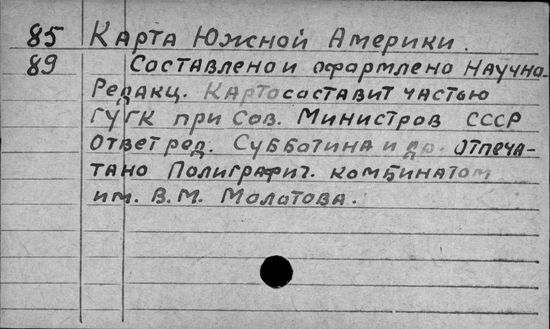 85 Карта Южной Америки.
89 Составлено и оформлено Научно-
Редакц. Картосоставит частью
ГУГК при Сов. Министров СССР
Ответ ред. Субботина и др. Отпеча-
тано Полиграфич. комбинатом
им. В.М. Молотова.